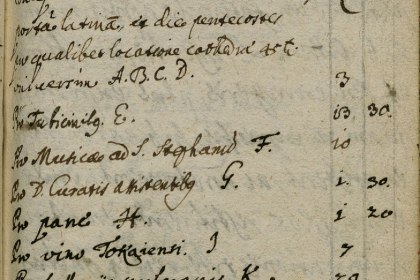 portã latinã, et die pentecostes
pro qualibet locatione cathedrã 45 ti.
A. B. C. D. 3
Pro Tubicinibq E. 13 30.
Pro Musicis ad S. Stephanũ F. 10
Pro D. Curatis assistentibq G. 1. 30.
Pro pane H 1 20
Pro vino Tokaiensi. I 7
K